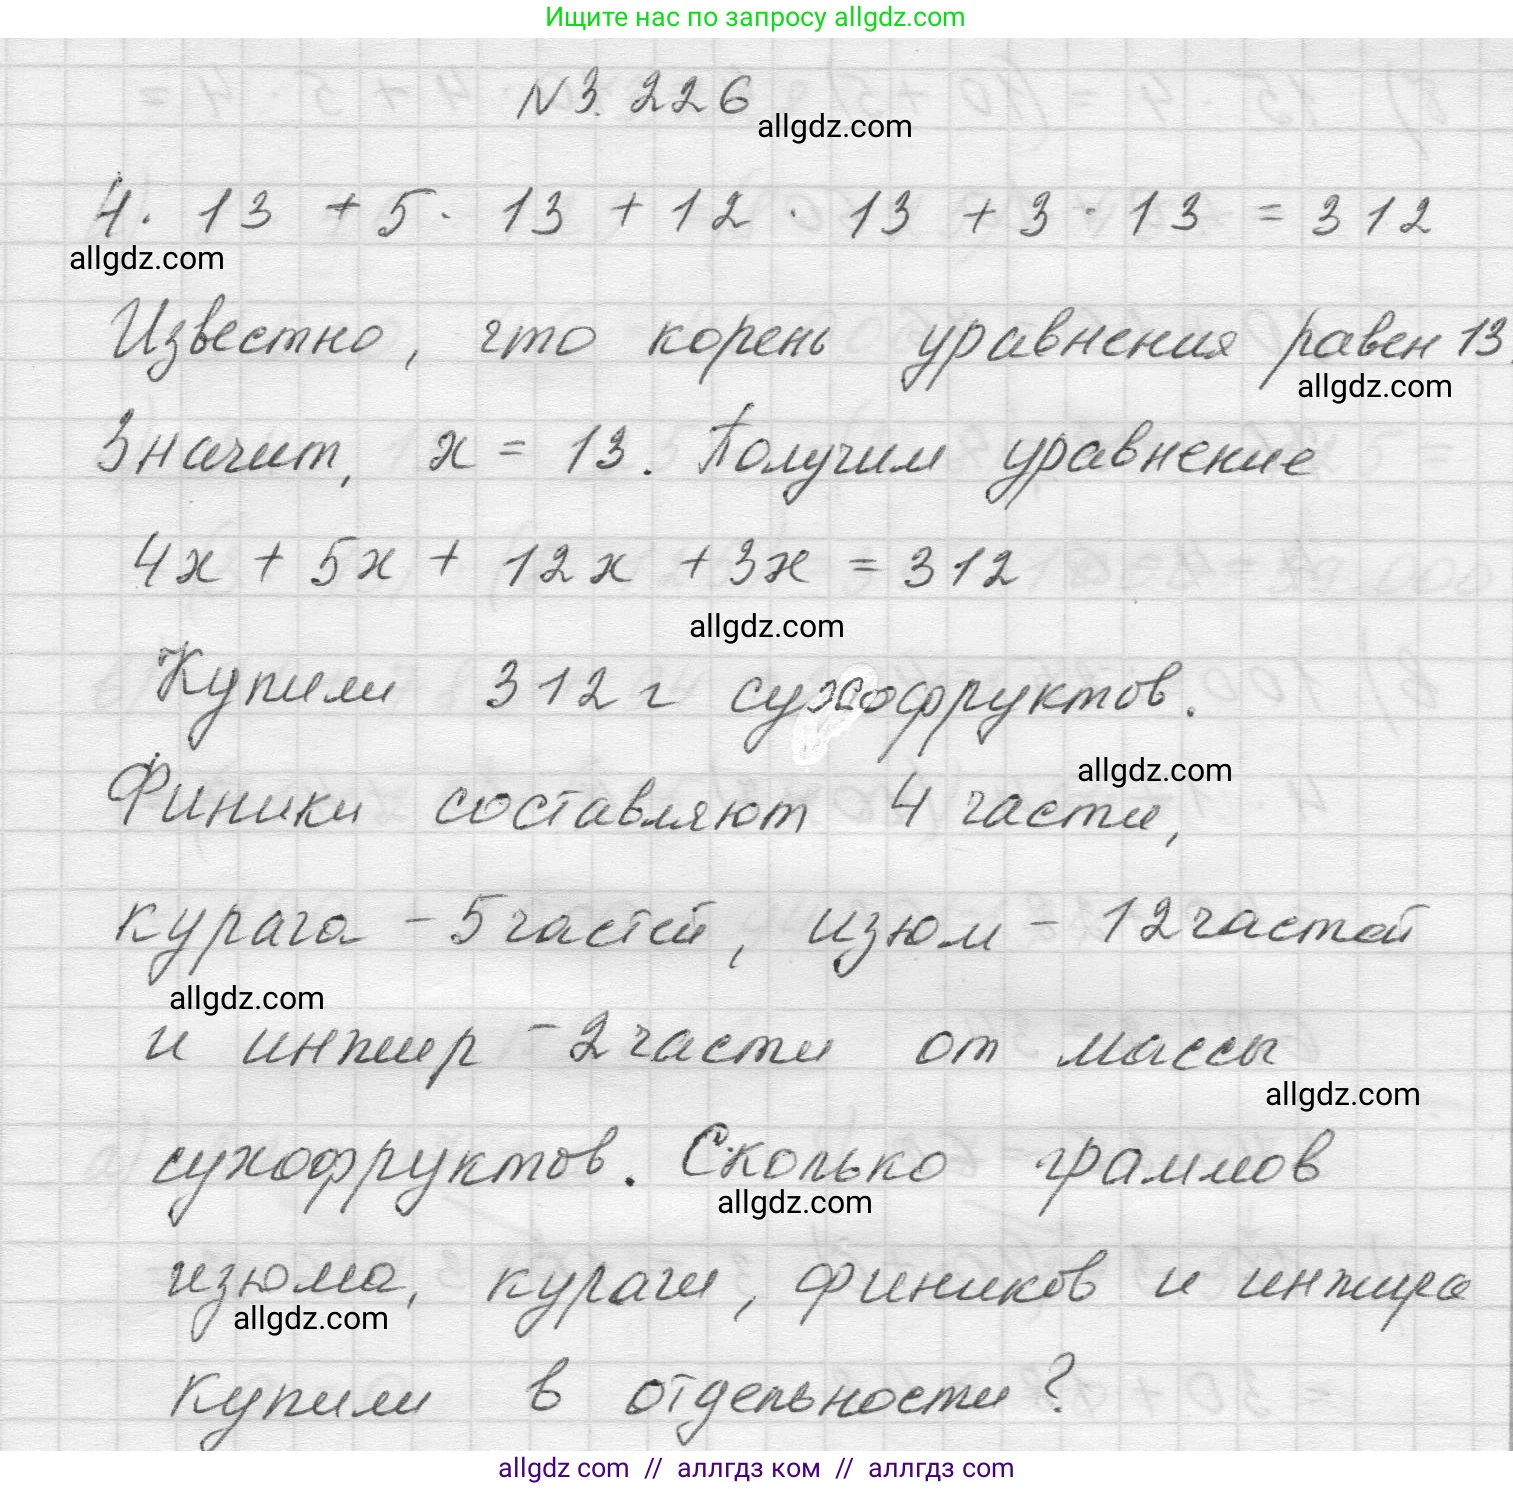 Ищите нас по запросу allgdz.com
N 3. 226
allgdz.com
4. 13 + 5 · 13 + 12 · 13 + 3 · 13 = 312
allgdz.com
Известно, что корень уравнения равен 13.
allgdz.com
Значит, x = 13. Получим уравнение
4x + 5x + 12x + 3x = 312
allgdz.com
Купили 312 г сухофруктов.
allgdz.com
Финики составляют 4 части,
курага - 5 частей, изюм - 12 частей
allgdz.com
и инжир - 2 части от массы
allgdz.com
сухофруктов. Сколько граммов
allgdz.com
изюма, кураги, фиников и инжира
allgdz.com
купили в отдельности?
allgdz com // аллгдз ком // аллгдз com